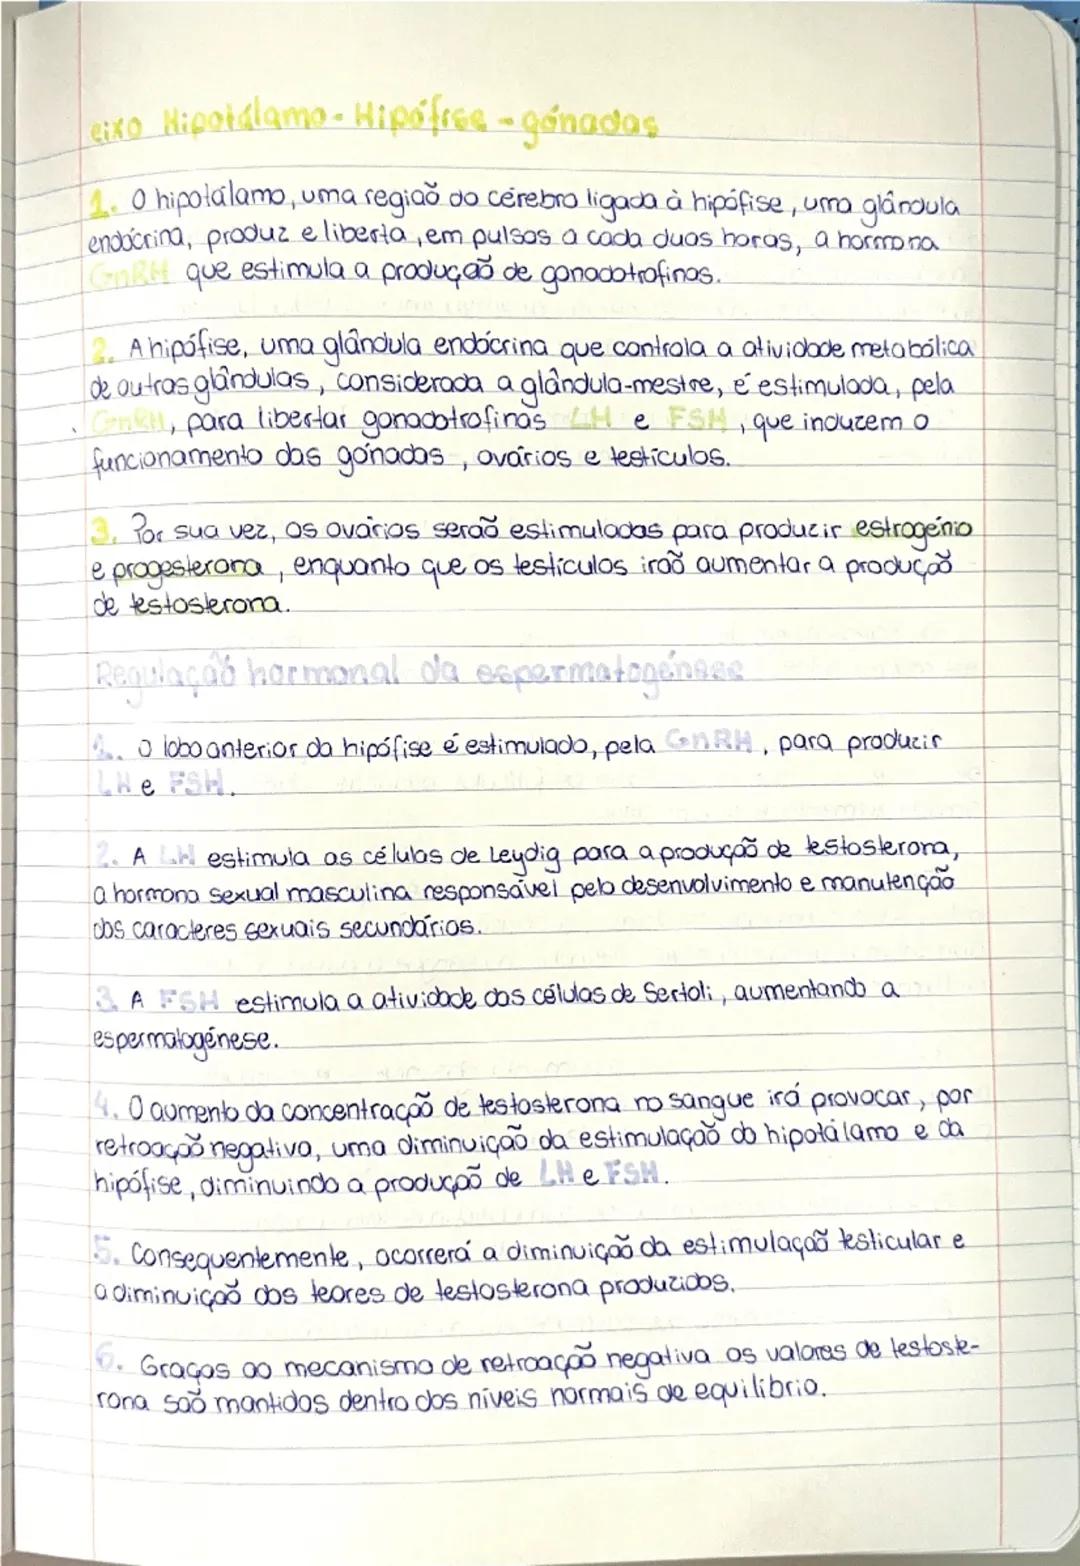 eixo Hipotálamo-Hipófise-gónadas
1. O hipotálamo, uma região do cérebro ligada à hipófise, uma glândula
endócrina, produz e liberta, em pulsos a cada duas horas, a hormona
GnRH que estimula a produção de gonadotrofinas.
2. A hipófise, uma glândula endócrina que controla a atividade metabólica
de outras glândulas, considerada a glândula-mestre, é estimulada, pela
GnRH, para libertar gonadotrofinas LH e FSH, que induzem o
funcionamento das gónadas, ovários e testículos.
3. Por sua vez, os ovários serão estimulados para produzir estrogénio
e progesterona, enquanto que os testículos irão aumentar a produção
de testosterona.
Regulação hormonal da espermatogénese
1. O lobo anterior da hipófise é estimulado, pela GnRH, para produzir
LH e FSH.
2. A LH estimula as células de Leydig para a produção de testosterona,
a hormona sexual masculina responsável pelo desenvolvimento e manutenção
dos caracteres sexuais secundários.
3. A FSH estimula a atividade das células de Sertoli, aumentando a
espermatogénese.
4. O aumento da concentração de testosterona no sangue irá provocar, por
retroação negativa, uma diminuição da estimulação do hipotálamo e da
hipófise, diminuindo a produção de LH e FSH.
5. Consequentemente, ocorrerá a diminuição da estimulação testicular e
a diminuição dos teores de testosterona produzidos.
6. Graças ao mecanismo de retroação negativa os valores de testoste-
rona são mantidos dentro dos níveis normais de equilíbrio.